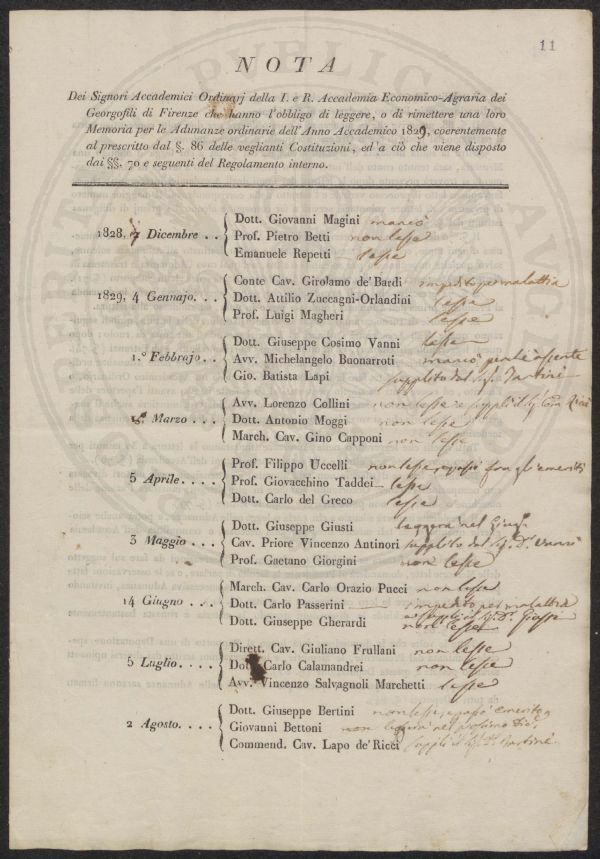 11
NOTA
Dei Signori Accademici Ordinarj della I. e R. Accademia Economico-Agraria dei
Georgofili di Firenze che hanno l'obbligo di leggere, o di rimettere una loro
Memoria per le Adunanze ordinarie dell'Anno Accademico 1829, coerentemente
al prescritto dal §. 86 delle veglianti Costituzioni, ed a ciò che viene disposto
dai §§. 70 e seguenti del Regolamento interno.
Dott. Giovanni Magini mancò
1828, 7 Dicembre . . Prof. Pietro Betti non lesse
Emanuele Repetti lesse
Conte Cav. Girolamo de' Bardi impedito per malattia
1829, 4 Gennajo. . . Dott. Attilio Zuccagni-Orlandini lesse
Prof. Luigi Magheri lesse
Dott. Giuseppe Cosimo Vanni lesse
1.º Febbrajo . . Avv. Michelangelo Buonarroti mancò perchè assente
Gio. Batista Lapi supplito dal Tartini
Avv. Lorenzo Collini non lesse e supplì il
Marzo . . . Dott. Antonio Moggi non lesse
March. Cav. Gino Capponi non lesse
Prof. Filippo Uccelli non lesse, passò fra gli emeriti
5 Aprile. . . . Prof. Giovacchino Taddei lesse
Dott. Carlo del Greco lesse
Dott. Giuseppe Giusti leggerà nel Giug.
3 Maggio . . . Cav. Priore Vincenzo Antinori supplito dal Sig. D. Vanni
Prof. Gaetano Giorgini non lesse
March. Cav. Carlo Orazio Pucci non lesse
14 Giugno . . . Dott. Carlo Passerini impedito per malattia
supplì il Sig. D.
Dott. Giuseppe Gherardi non lesse
Dirett. Cav. Giuliano Frullani non lesse
5 Luglio. . . . Dott. Carlo Calamandrei non lesse
Avv. Vincenzo Salvagnoli Marchetti lesse
Dott. Giuseppe Bertini non lesse, passò emerito
2 Agosto. . . . Giovanni Bettoni non nel prossimo
Commend. Cav. Lapo de' Ricci supplì il Tartini